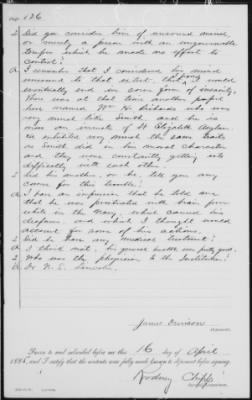 No 126
Q Did you consider him of unsound mind,
or merely a person with an ungovernable
temper which he made no effort to
control?
A I remember that I considered his mind
unsound to that extent that it would
eventually end in some form of insanity.
There was at that time another pupil
here named Wm H. who was
very much like Smith, and he is
now an inmate of St Elizabeth Asylum.
He exhibited very much the same traits
as Smith did in his moral character
and they were constantly getting into
difficulty with each other.
Q Did his mother, or he, tell you any
cause for this trouble?
A I have an impression that he told me
that he was prostrated with brain fever
while in the Navy, which caused his
deafness, and which I thought would
account for some of his actions.
Q Did he have any Medical treatment?
A I think not, his general health was pretty good.
Q Who was the physician to the Institution?
A Dr. N. S. Lincoln.
James Denison
Deponent.
Sworn to and subscribed before me this 16 day of April
188, and I certify that the contents were fully made known to deponent before signing.
Rodney Chipp